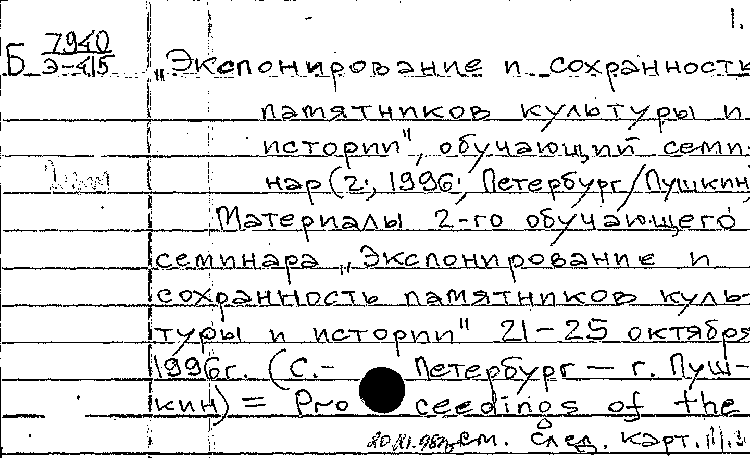 1.
Б 7940
Э-415
„Экспонирование и сохранность
памятников культуры и
истории", обучающий семи-
нар (2; 1996; Петербург/Пушкин)
Материалы 2-го обучающего
семинара „Экспонирование и
сохранность памятников куль-
туры и истории" 21-25 октября
1996г. (С.- Петербург — г. Пуш-
кин) = Proceedings of the
см. след. карт.